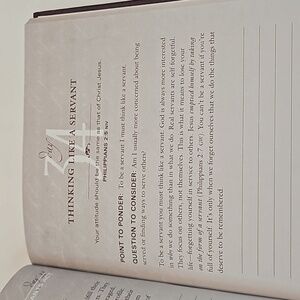 Day
34
THINKING LIKE A SERVANT
Your attitude should be the same as that of Christ Jesus.
PHILIPPIANS 2:5
POINT TO PONDER: To be a servant I must think like a servant.
QUESTION TO CONSIDER: Am I usually more concerned about being
served or finding ways to serve others?
To be a servant you must think like a servant. God is always more interested
in why we do something than in what we do. Real servants are self-forgetful.
They focus on others, not themselves. This is what it means to lose your
life—forgetting yourself in service to others. Jesus emptied himself by taking
on the form of a servant (Philippians 2:7 GW). You can't be a servant if you're
full of yourself. It's only when we forget ourselves that we do the things that
deserve to be remembered.